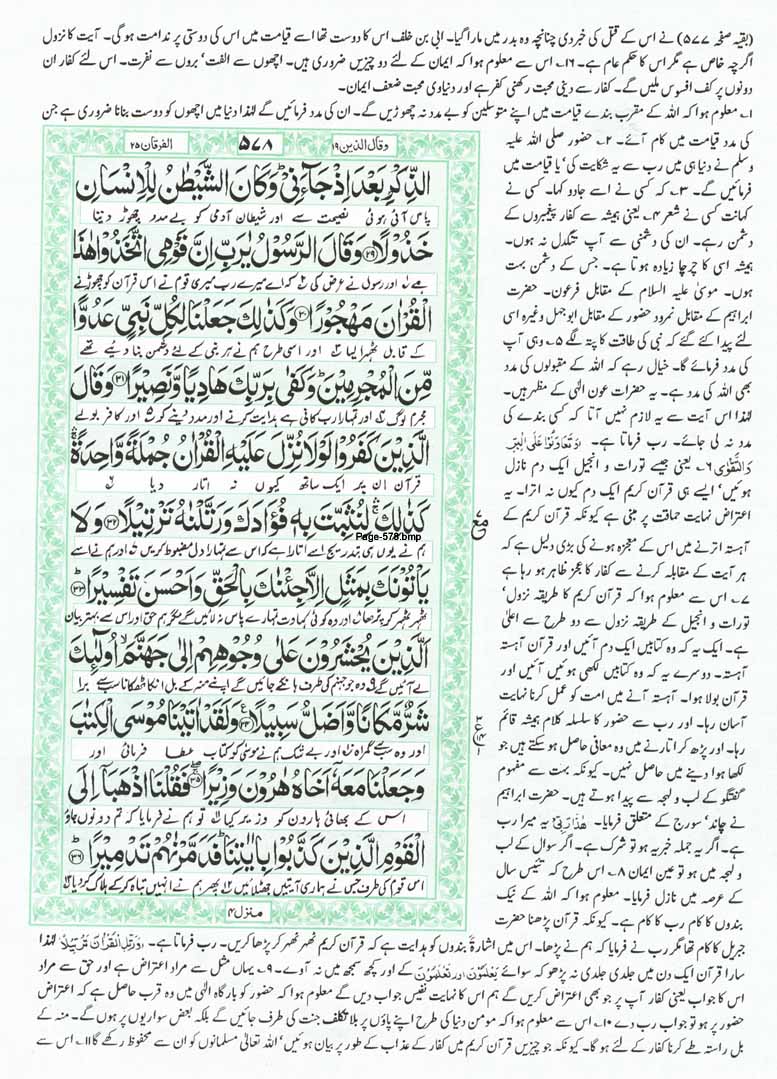 (بقیہ صفحہ ۵۷۷) نے اس کے قتل کی خبر دی چنانچہ وہ بدر میں مارا گیا۔ ابی بن خلف اس کا دوست تھا اسے قیامت میں اس کی دوستی پر ندامت ہو گی۔ آیت کا نزول
اگرچہ خاص ہے مگر اس کا حکم عام ہے۔ ۱۶۔ اس سے معلوم ہوا کہ ایمان کے لئے دو چیزیں ضروری ہیں۔ اچھوں سے الفت‘ بروں سے نفرت۔ اس لئے کفار ان
دونوں پر کف افسوس ملیں گے۔ کفار سے دینی محبت رکھنی کفر ہے اور دنیاوی محبت ضعف ایمان۔
۱۔ معلوم ہوا کہ اللہ کے مقرب بندے قیامت میں اپنے متوسلین کو بے مدد نہ چھوڑیں گے۔ ان کی مدد فرمائیں گے لہٰذا دنیا میں اچھوں کو دوست بنانا ضروری ہے جن
کی مدد قیامت میں کام آئے۔ ۲۔ حضور صلی اللہ علیہ
وسلم نے دنیا ہی میں رب سے یہ شکایت کی‘ یا قیامت میں
فرمائیں گے۔ ۳۔ کہ کسی نے اسے جادو کہا۔ کسی نے
کہانت کسی نے شعر ۴۔ یعنی ہمیشہ سے کفار پیغمبروں کے
دشمن رہے۔ ان کی دشمنی سے آپ تنگدل نہ ہوں۔
ہمیشہ اسی کا چرچا زیادہ ہوتا ہے۔ جس کے دشمن بہت
ہوں۔ موسیٰ علیہ السلام کے مقابل فرعون۔ حضرت
ابراہیم کے مقابل نمرود حضور کے مقابل ابوجہل وغیرہ اسی
لئے پیدا کئے گئے کہ نبی کی طاقت کا پتہ لگے ۵۔ وہی آپ
کی مدد فرمائے گا۔ خیال رہے کہ اللہ کے مقبولوں کی مدد
بھی اللہ کی مدد ہے۔ یہ حضرات عون الٰہی کے مظہر ہیں۔
لہٰذا اس آیت سے یہ لازم نہیں آتا کہ کسی بندے کی
مدد نہ لی جائے۔ رب فرماتا ہے۔ وَتَعَاوَنُوْا عَلَی الْبِرِّ
وَالتَّقْوٰی ۶۔ یعنی جیسے تورات و انجیل ایک دم نازل
ہوئیں‘ ایسے ہی قرآن کریم ایک دم کیوں نہ اترا۔ یہ
اعتراض نہایت حماقت پر مبنی ہے کیونکہ قرآن کریم کے
آہستہ اترنے میں اس کے معجزہ ہونے کی بڑی دلیل ہے کہ
ہر آیت کے مقابلہ کرنے سے کفار کا عجز ظاہر ہو رہا ہے
۷۔ اس سے معلوم ہوا کہ قرآن کریم کا طریقہ نزول‘
تورات و انجیل کے طریقہ نزول سے دو طرح سے اعلیٰ
ہے۔ ایک یہ کہ وہ کتابیں ایک دم آئیں اور قرآن آہستہ
آہستہ۔ دوسرے یہ کہ وہ کتابیں لکھی ہوئیں آئیں اور
قرآن بولا ہوا۔ آہستہ آنے میں امت کو عمل کرنا نہایت
آسان رہا۔ اور رب سے حضور کا سلسلہ کلام ہمیشہ قائم
رہا۔ اور پڑھ کر اتارنے میں وہ معانی حاصل ہو سکتے ہیں جو
لکھا ہوا دینے میں حاصل نہیں۔ کیونکہ بہت سے مفہوم
گفتگو کے لب و لہجہ سے پیدا ہوتے ہیں۔ حضرت ابراہیم
نے چاند‘ سورج کے متعلق فرمایا۔ هٰذَا رَبِّیْ یہ میرا رب
ہے۔ اگر یہ جملہ خبریہ ہو تو شرک ہے۔ اگر سوال کے لب
و لہجہ میں ہو تو عین ایمان ۸۔ اس طرح کہ تئیس سال
کے عرصہ میں نازل فرمایا۔ معلوم ہوا کہ اللہ کے نیک
بندوں کا کام رب کا کام ہے۔ کیونکہ قرآن پڑھنا حضرت
وقال الذین ۱۹ ۵۷۸ الفرقان ۲۵
الذِّكْرِ بَعْدَ اِذْ جَآءَنِیْ ؕ وَكَانَ الشَّیْطٰنُ لِلْاِنْسَانِ
پاس آئی ہوئی نصیحت سے اور شیطان آدمی کو بے مدد چھوڑ دیتا
خَذُوْلًا ﴿۲۹﴾ وَقَالَ الرَّسُوْلُ یٰرَبِّ اِنَّ قَوْمِی اتَّخَذُوْا هٰذَا
ہے ۱ اور رسول نے عرض کی ۲ کہ اے میرے رب میری قوم نے اس قرآن کو چھوڑنے
الْقُرْاٰنَ مَهْجُوْرًا ﴿۳۰﴾ وَكَذٰلِكَ جَعَلْنَا لِكُلِّ نَبِیٍّ عَدُوًّا
کے قابل ٹھہرا لیا ۳ اور اسی طرح ہم نے ہر نبی کے لئے دشمن بنا دیئے تھے
مِّنَ الْمُجْرِمِیْنَ ؕ وَكَفٰی بِرَبِّكَ هَادِیًا وَّنَصِیْرًا ﴿۳۱﴾ وَقَالَ
مجرم لوگ ۴ اور تمہارا رب کافی ہے ہدایت کرنے اور مدد دینے کو ۵ اور کافر بولے
الَّذِیْنَ كَفَرُوْا لَوْلَا نُزِّلَ عَلَیْهِ الْقُرْاٰنُ جُمْلَةً وَّاحِدَةً ۚ
قرآن ان پر ایک ساتھ کیوں نہ اتار دیا ۶
كَذٰلِكَ ۚ لِنُثَبِّتَ بِهٖ فُؤَادَكَ وَرَتَّلْنٰهُ تَرْتِیْلًا ﴿۳۲﴾ وَلَا
Page-578.bmp
ہم نے یوں ہی بتدریج اسے اتارا ہے کہ اس سے تمہارا دل مضبوط کریں ۷ اور ہم نے اسے
یَاْتُوْنَكَ بِمَثَلٍ اِلَّا جِئْنٰكَ بِالْحَقِّ وَاَحْسَنَ تَفْسِیْرًا ﴿۳۳﴾
ٹھہر ٹھہر کر پڑھا ۸ اور وہ کوئی کہاوت تمہارے پاس نہ لائیں گے مگر ہم حق اور اس سے بہتر بیان
اَلَّذِیْنَ یُحْشَرُوْنَ عَلٰی وُجُوْهِهِمْ اِلٰی جَهَنَّمَ ۙ اُولٰٓئِكَ
لے آئیں گے ۹ وہ جو جہنم کی طرف ہانکے جائیں گے اپنے منہ کے بل ان کا ٹھکانا سب سے برا
شَرٌّ مَّكَانًا وَّاَضَلُّ سَبِیْلًا ﴿۳۴﴾ وَلَقَدْ اٰتَیْنَا مُوْسَی الْكِتٰبَ
اور وہ سب سے گمراہ ۱۰ اور بے شک ہم نے موسیٰ کو کتاب عطا فرمائی اور
وَجَعَلْنَا مَعَهٗۤ اَخَاهُ هٰرُوْنَ وَزِیْرًا ﴿۳۵﴾ فَقُلْنَا اذْهَبَاۤ اِلَی
اس کے بھائی ہارون کو وزیر کیا ۱۱ تو ہم نے فرمایا کہ تم دونوں جاؤ
الْقَوْمِ الَّذِیْنَ كَذَّبُوْا بِاٰیٰتِنَا ؕ فَدَمَّرْنٰهُمْ تَدْمِیْرًا ﴿۳۶﴾
اس قوم کی طرف جس نے ہماری آیتیں جھٹلائیں ۱۲ پھر ہم نے انہیں تباہ کر کے ہلاک کر دیا ۱۳
منزل ۴
جبریل کا کام تھا مگر رب نے فرمایا کہ ہم نے پڑھا۔ اس میں اشارۃً بندوں کو ہدایت ہے کہ قرآن کریم ٹھہر ٹھہر کر پڑھا کریں۔ رب فرماتا ہے۔ وَرَتِّلِ الْقُرْاٰنَ تَرْتِیْلًا لہٰذا
سارا قرآن ایک دن میں جلدی جلدی نہ پڑھو کہ سوائے یَعْلَمُوْنَ اور تَعْلَمُوْنَ کے اور کچھ سمجھ میں نہ آوے۔ ۹۔ یہاں مثل سے مراد اعتراض ہے اور حق سے مراد
اس کا جواب یعنی کفار آپ پر جو بھی اعتراض کریں گے ہم اس کا نہایت نفیس جواب دیں گے معلوم ہوا کہ حضور کو بارگاہ الٰہی میں وہ قرب حاصل ہے کہ اعتراض
حضور پر ہو تو جواب رب دے ۱۰۔ اس سے معلوم ہوا کہ مومن دنیا کی طرح اپنے پاؤں پر بلا تکلف جنت کی طرف جائیں گے بلکہ بعض سواریوں پر ہوں گے۔ منہ کے
بل راستہ طے کرنا کفار کے لئے ہو گا۔ کیونکہ جو چیزیں قرآن کریم میں کفار کے عذاب کے طور پر بیان ہوئیں‘ اللہ تعالیٰ مسلمانوں کو ان سے محفوظ رکھے گا ۱۱۔ اس سے